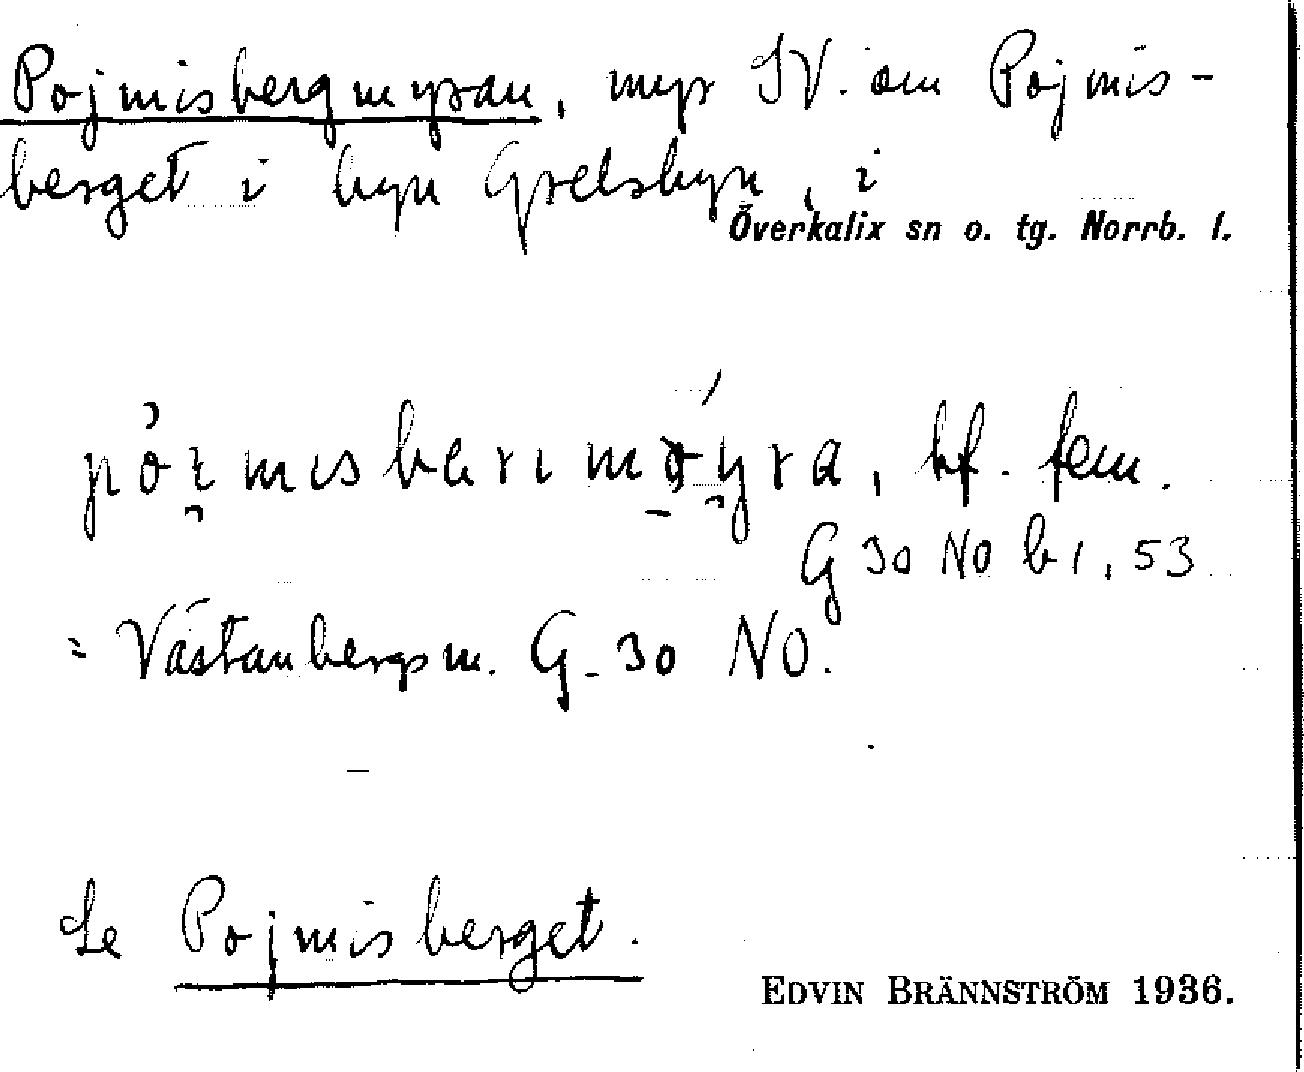 Pojmisbergmyran, myr SV. om Pojmis-
berget i byn Grelsbyn, i
Överkalix sn o. tg. Norrb. l.
bf. fem.
G 30 NO b 1, 53
= Västanbergsm. G. 30 NO.
Se Pojmisberget.
EDVIN BRÄNNSTRÖM 1936.